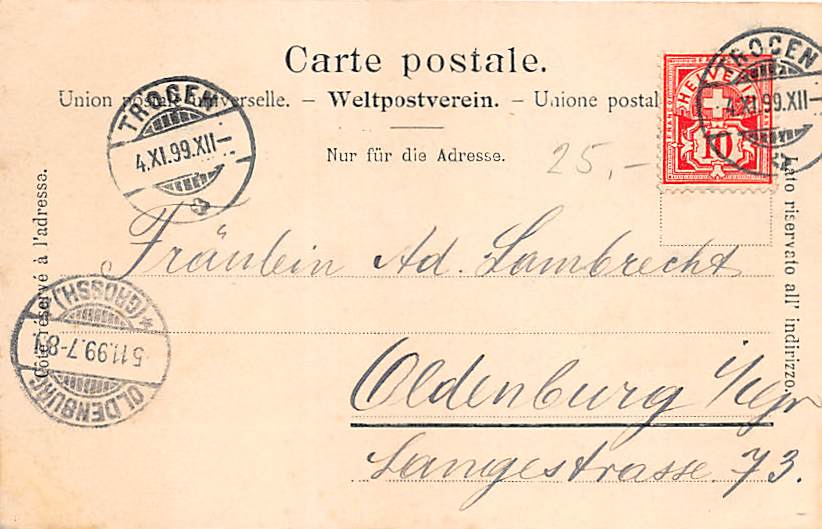 Carte postale.
Union postale universelle. – Weltpostverein. – Unione postal
Nur für die Adresse.
25,–
TROGEN
4.XI.99.XII–
HELVETIA
10
TROGEN
4.XI.99.XII–
Côté réservé à l'adresse.
Lato riservato all' indirizzo.
Fräulein Ad. Lambrecht
OLDENBURG
5.11.99.7-8
(GROSSH.)
Oldenburg i/Gr
Langestrasse 73.